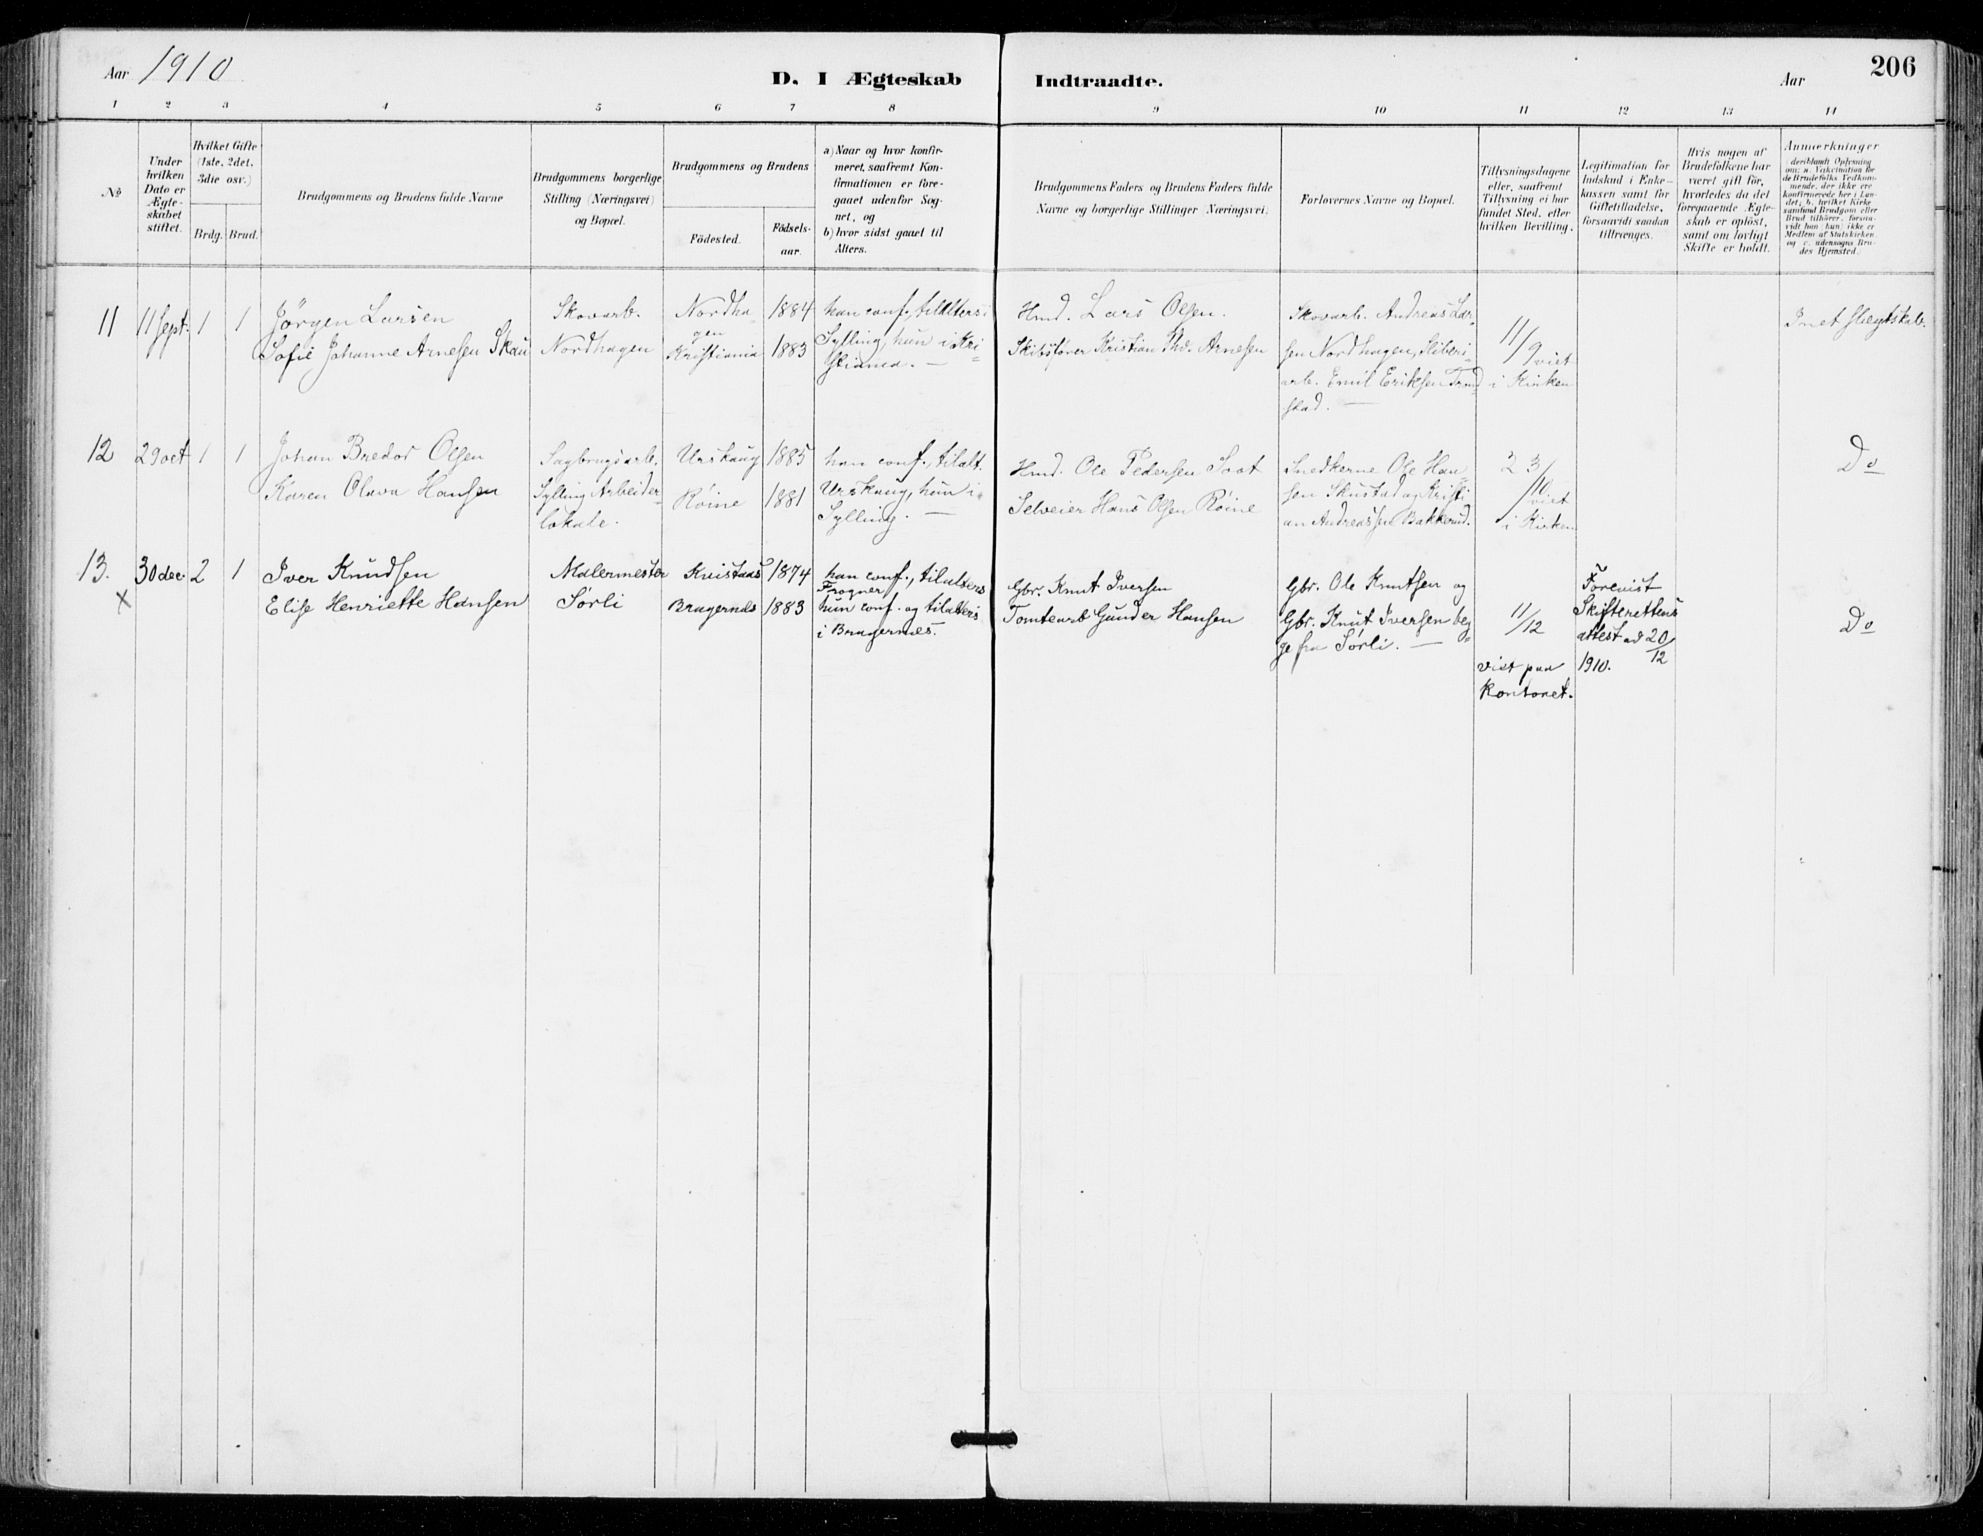 Aar 1910
D. I Ægteskab Indtraadte.
Aar
206
1 2 3 4 5 6 7 8 9 10 11 12 13 14
No
Under
hvilken
Dato er
Ægte-
skabet
stiftet.
Hvilket Gifte
(1ste, 2det,
3die osv.)
Brdg. Brud.
Brudgommens og Brudens fulde Navne
Brudgommens borgerlige
Stilling (Næringsvei)
og Bopæl.
Brudgommens og Brudens
Födested.
Födsels-
aar.
a) Naar og hvor konfir-
meret, saafremt Kon-
firmationen er fore-
gaaet udenfor Sog-
net, og
b) hvor sidst gaaet til
Alters.
Brudgommens Faders og Brudens Faders fulde
Navne og borgerlige Stillinger (Næringsvei).
Forlovernes Navne og Bopæl.
Tillysningsdagene
eller, saafremt
Tillysning ei har
fundet Sted, efter
hvilken Bevilling.
Legitimation for
Indskud i Enke-
kassen samt for
Giftetilladelse,
forsaavidt saadan
tiltrænges.
Hvis nogen af
Brudefolkene har
været gift för,
hvorledes da det
foregaaende Ægte-
skab er oplöst,
samt om lovligt
Skifte er holdt.
Anmerkninger
(deriblandt Oplysning
om: a. Vakcination for
de Brudefolks Vedkom-
mende, der ikke ere
konfirmerede her i Lan-
det; b. hvilket Kirke-
samfund Brudgom eller
Brud tilhörer, forsaa-
vidt han (hun) ikke er
Medlem af Statskirken,
og c. udensogns Bru-
des Hjemsted.
11 11 Sept. 1 1
Jørgen Larsen
Sofie Johanne Arnesen Skau
Skovarb.
Nordhagen
Nordha-
gen
Kristiania
1884
1883
han conf., tilalters i
Sylling, hun i Kri-
stiania. —
Hmd. Lars Olsen.
Skibsfører Kristian Thv. Arnesen
Skovarb. Andreas Lar-
sen Nordhagen, Sliberi-
arb. Emil Eriksen
stad. —
11/9 viet
i Kirken
Intet slægtskab.
12 29 oct 1 1
Johan Bredor Olsen
Karen Olava Hansen
Sagbrugsarb.
Sylling Arbeider-
lokale.
Urskaug
Røine
1885
1881
han conf., tilalt.
Urskaug, hun i
Sylling. —
Hmd. Ole Pedersen Soot
Selveier Hans Olsen Røine
Snedkerne Ole Han-
sen Skustad og Kristi-
an Andreassen Bakkerud.
23/10 viet
i Kirken
Do
13. 30 dec. 2 1
x
Iver Knudsen
Elise Henriette Hansen
Malermester
Sørli
Kristians
Bragernes
1874
1883
han conf., tilalters
Frogner
hun conf. og tilalters
i Bragernes.
Gbr. Knut Iversen
Tomtearb Gunder Hansen
Gbr. Ole Knutsen og
Gbr. Knut Iversen beg-
ge fra Sørli. —
11/12
viet paa
Kontoret.
Forevist
Skifterettens
attest ad 20/12
1910.
Do